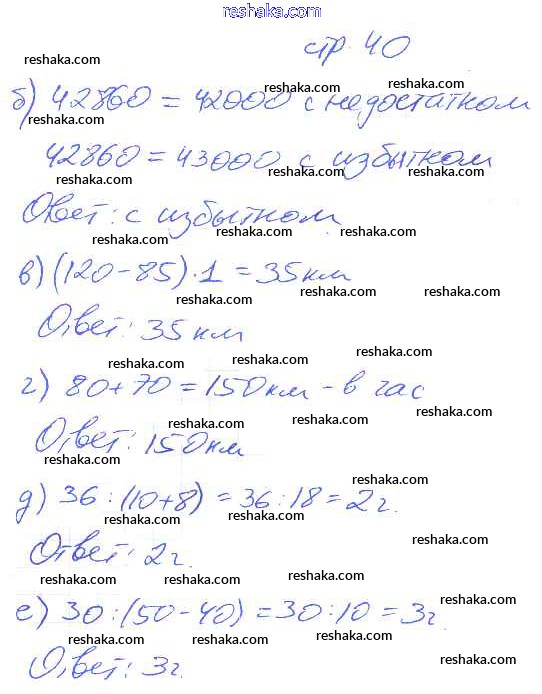 www.reshaka.com
стр. 40
reshaka.com
reshaka.com
б) 42860 = 42000 с недостатком
reshaka.com
reshaka.com
42860 = 43000 с избытком
reshaka.com
reshaka.com
Ответ: с избытком
reshaka.com
reshaka.com
в) (120-85)·1 = 35 км
reshaka.com
reshaka.com
Ответ: 35 км
reshaka.com
reshaka.com
г) 80+70 = 150 км - в час
reshaka.com
reshaka.com
Ответ: 150 км
reshaka.com
reshaka.com
д) 36 : (10+8) = 36 : 18 = 2 г.
reshaka.com
reshaka.com
reshaka.com
Ответ: 2 г.
reshaka.com
reshaka.com
reshaka.com
е) 30 : (50-40) = 30 : 10 = 3 г.
reshaka.com
reshaka.com
reshaka.com
Ответ: 3 г.
reshaka.com
reshaka.com